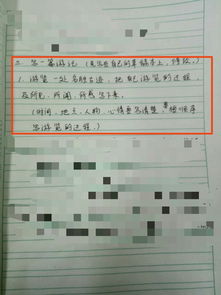 二、写一篇游记(先写在自己的草稿本上,修改。)
1、游览一处名胜古迹,把自己游览的过程,
及所见、所闻、所感写下来。
(时间、地点、人物、心情要写清楚,要按顺序
写游览的过程。)